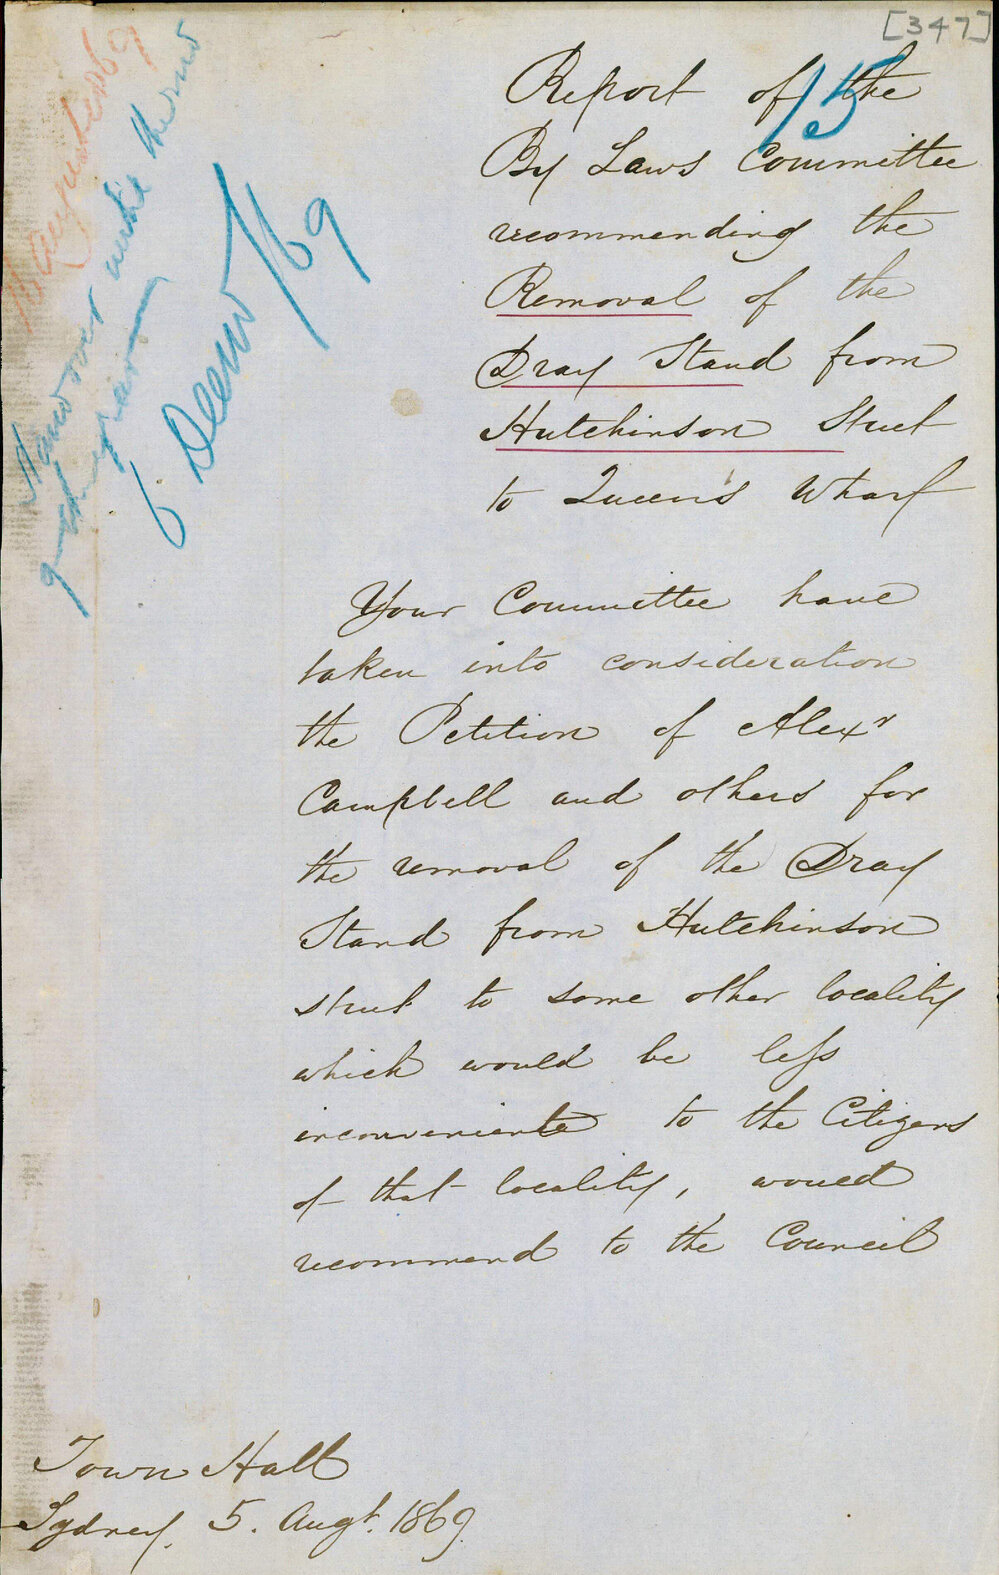 [347]
15
Report of the
By Laws Committee
recommending the
Removal of the
Dray Stand from
Hutchinson Street
to Queen's Wharf
Your Committee have
taken into consideration
the Petition of Alexr
Campbell and others for
the removal of the Dray
Stand from Hutchinson
street to some other locality
which would be less
inconvenient to the Citizens
of that locality, would
recommend to the Council
Town Hall
Sydney, 5. Augt. 1869.
August 69
6 Decem /69